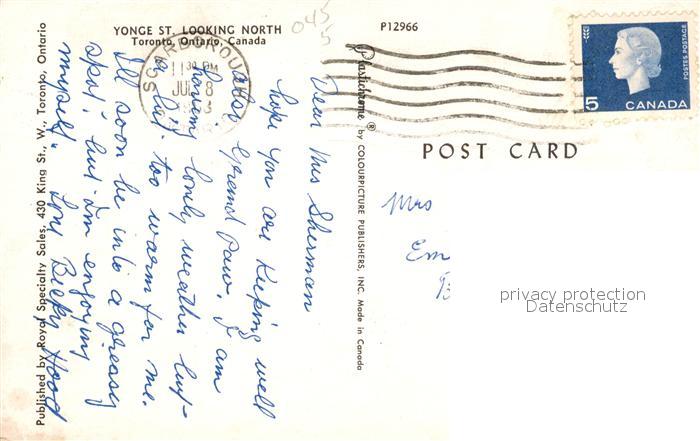 YONGE ST. LOOKING NORTH
Toronto, Ontario, Canada
P12966
045
5
SCARBOROUGH
11 30 PM
JUL 8
1963
5
CANADA
POSTES POSTAGE
POST CARD
Published by Royal Specialty Sales, 430 King St., W., Toronto, Ontario
Plastichrome ® by COLOURPICTURE PUBLISHERS, INC. Made in Canada
Dear Mrs Sherman
hope you are keeping well
also Grand Paw. I am
having lovely weather but
a bit too warm for me.
I'll soon be into a greasy
spot, but I'm enjoying
myself. Love Becky Hood
Mrs
Em
privacy protection
Datenschutz